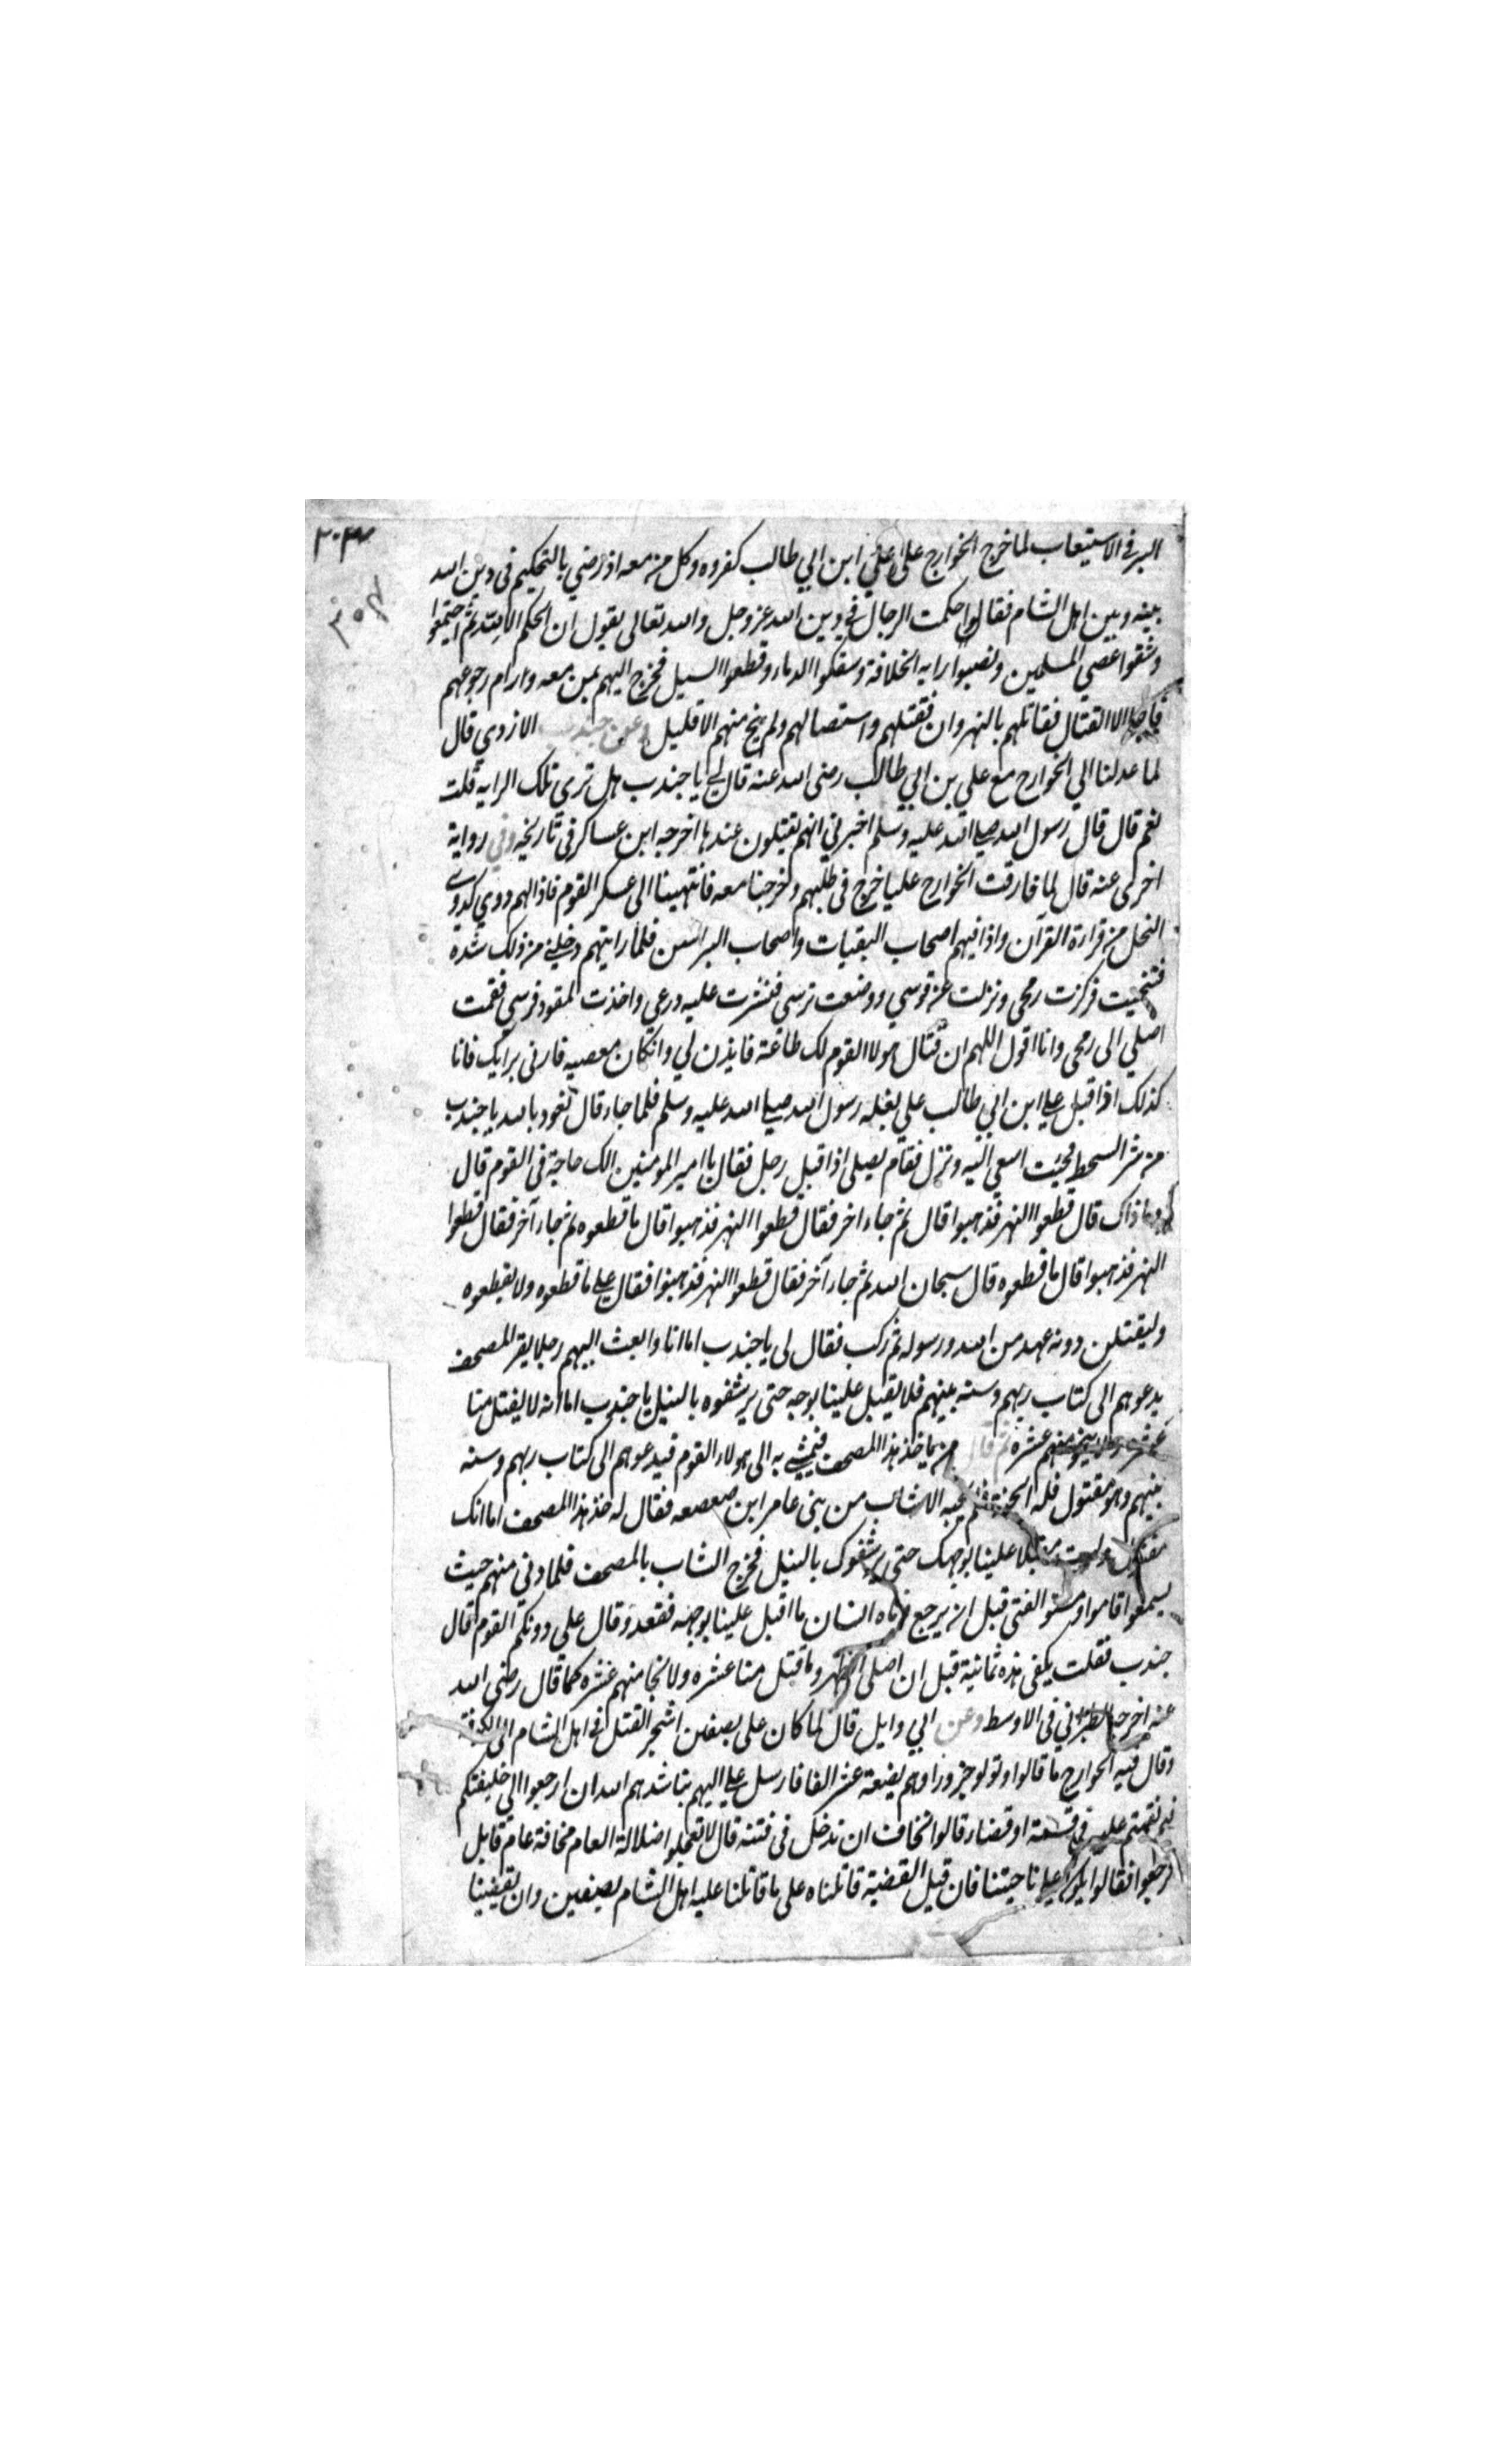 البر في الاستيعاب لما خرج الخوارج على علي ابن ابي طالب كفروه وكل من معه اذ رضي بالتحكيم في دين الله
بينه وبين اهل الشام فقالوا حكمت الرجال في دين الله عز وجل والله تعالى يقول ان الحكم الا لله ثم اجتمعوا
وشقوا عصى المسلمين ونصبوا راية الخلافة وسفكوا الدماء وقطعوا السبيل فخرج اليهم بمن معه ورام رجوعهم
فابوا الا القتال فقاتلهم بالنهروان فقتلهم واستصالهم ولم ينج منهم الا قليل وعن جندب الازدي قال
لما عدلنا الي الخوارج مع علي بن ابي طالب رضى الله عنه قال لي يا جندب هل ترى تلك الراية قلت
نعم قال قال رسول الله صلى الله عليه وسلم اخبرني انهم يقتلون عندها اخرجه ابن عساكر في تاريخه وفي رواية
اخرى عنه قال لما فارقت الخوارج عليا خرج في طلبهم وخرجنا معه فانتهينا الى عسكر القوم فاذا لهم دوي كدوي
النحل من قراءة القرآن واذا فيهم اصحاب البقيات واصحاب البرانس فلما رايتهم دخلني من ذلك شدة
فتنحيت فركزت رمحى ونزلت عن قوسي ووضعت ترسي فنشرت عليه درعي واخذت المقود فرسي فقمت
اصلي الى رمحى وانا اقول اللهم ان قتال هولا القوم لك طاعة فايذن لي وانكان معصيه فارنى برايك فانا
كذلك اذا قبل علي ابن ابي طالب علي بغله رسول الله صلي الله عليه وسلم فلما جاء قال نعوذ بالله يا جندب
من شر السحط فجئت اسعي اليه ونزل فقام يصلى اذا قبل رجل فقال يا امير المومنين الك حاجة في القوم قال
وما ذاك قال قطعوا النهر فذهبوا قال ثم جاء اخر فقال قطعوا النهر فذهبوا قال ما قطعوه ثم جاء آخر فقال قطعوا
النهر فذهبوا قال ما قطعوه قال سبحان الله ثم جاء آخر فقال قطعوا النهر فذهبوا فقال علي ما قطعوه ولا يقطعوه
وليقتلن دونه عهد من الله ورسوله ثم ركب فقال لى يا جندب اما انا وابعث اليهم رجلا يقر المصحف
يدعوهم الى كتاب ربهم وسنه بينهم فلا يقبل علينا بوجه حتى يرشقوه بالنبل يا جندب اما انه لا يقتل منا
عشرة ولا ينجو منهم عشرة ثم قال من ياخذ هذا المصحف فيمشي به الى هولاء القوم فيدعوهم الى كتاب ربهم وسنه
بينهم وهو مقتول فله الجنة فلم يجبه الا شاب من بنى عامر ابن صعصعه فقال له خذ هذا المصحف اما انك
مقتول ولست مقبلا علينا بوجهك حتى يرشقوك بالنبل فخرج الشاب بالمصحف فلما دني منهم حيث
يسمعوا قاموا الفتى قبل ان يرجع انسان ما اقبل علينا بوجهه فقعد وقال على دونكم القوم قال
جندب فقلت بكفى هذه ثمانية قبل ان اصلى الظهر وما قتل منا عشره ولا نجا منهم عشره كما قال رضى الله
عنه اخرجه الطبراني في الاوسط وعن ابي وايل قال لما كان على بصفين اشجر القتل في اهل الشام الى الكوفة
وقال فيه الخوارج ما قالوا ونزلوا حرورا وهم بضعة عشر الفا فارسل علي اليهم يناشدهم الله ان ارجعوا الى خليفتكم
فيم نقمتم عليه في قسمة او قضاء قالوا نخاف ان تدخل في فتنه قال لا تعجلوا ضلالة العام مخافة عام قابل
فرجعوا فقالوا على ناحيتنا فان قبل القضية قاتلناه على ما قاتلنا عليه اهل الشام بصفين وان نقضينا